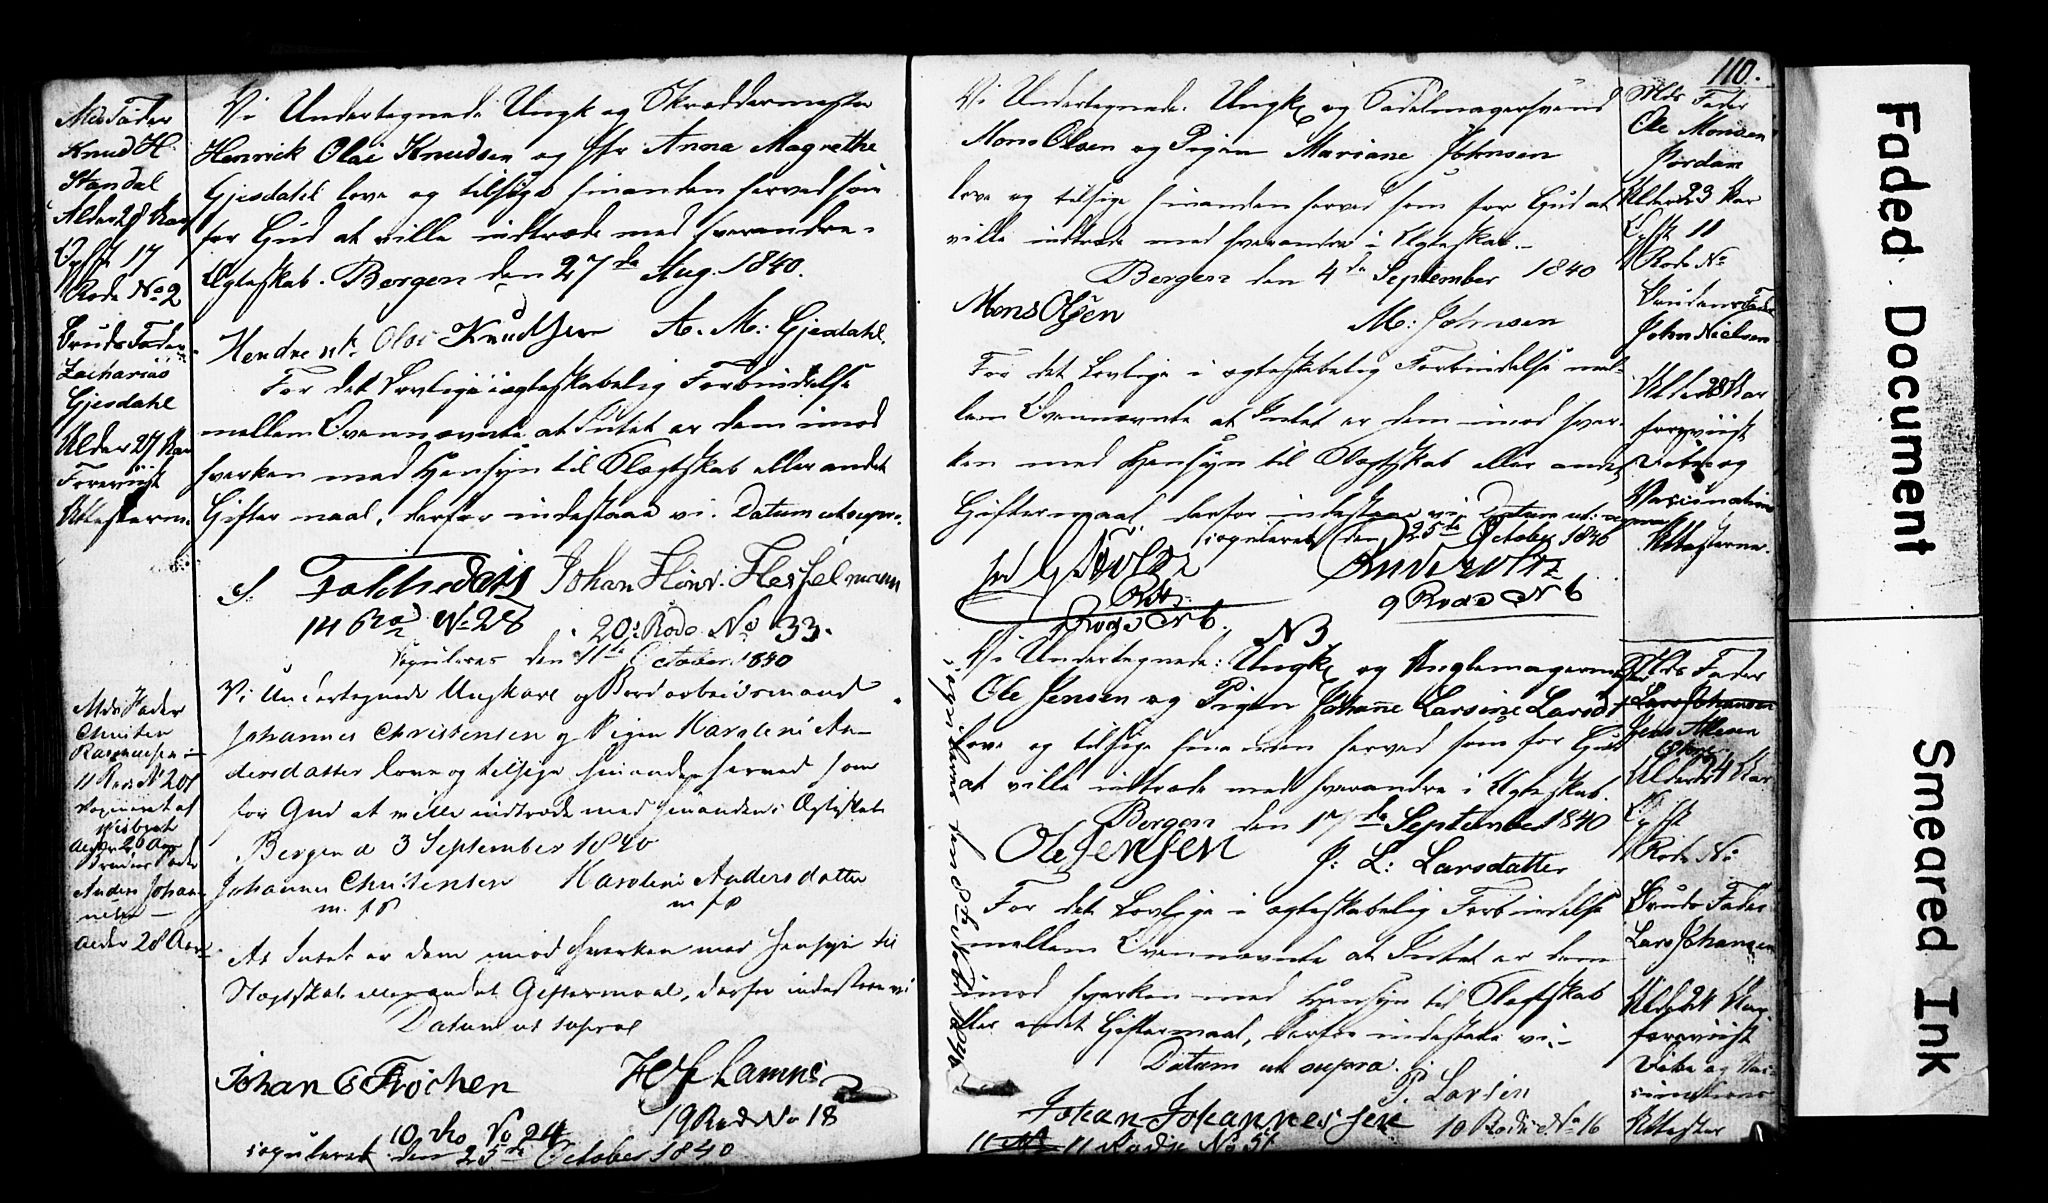 Mds Fader
Knud H
Standal
Alder 28 Aar
Lyst 17
Rode No 2
Bruds Fader
Zacharias
Gjesdahl
Alder 27 Aar
Foreviist
Attesterne
Vi Undertegnede Ungk og Skræddermester
Henrick Olai Knudsen og Jfr Anna Magrethe
Gjesdahl love og tilsige hinanden herved som
for Gud at ville indtræde med hverandre i
Ægteskab. Bergen den 27de Aug. 1840.
Olai Knudsen A. M: Gjesdahl.
For det Lovlige i ægteskabelig Forbindelse
mellem Ovennævnte at Intet er dem imod
hverken med Hensyn til Slægtskab eller andet
Giftermaal, derfor indestaae vi. Datum ut supra.
Johan Hesselmann
14 Rode No 28 20: Rode No 33.
Copuleret den 11te October 1840
Mds Fader
Christen
Rasmussen
11 Rode No 201
Vaxineret af
Wisbech
Alder 26 Aar
Brudens Fader
Anders Johan-
nesen
Alder 28 Aar
Vi Undertegnede Ungkarl og Bordarbeidsmand
Johannes Christensen og Pigen Karoline An-
dersdatter love og tilsige hinanden herved som
for Gud at ville indtræde med hinanden i Ægteskab
Bergen d 3 September 1840
Johannes Christensen Karoline Andersdatter
m. f. p m f p
At Intet er dem imod hverken med Hensyn til
Slægtskab eller andet Giftermaal, derfor indestaae vi
Datum ut supra
Johan C
10 Ro No 24 19 Rode No 18
copuleret den 25de October 1840
110.
Vi Undertegnede: Ungk og Sadelmagersvend
Mons Olsen og Pigen Mariane Johnsen
love og tilsige hinanden herved som for Gud at
ville indtræde med hverandre i Ægteskab.-
Bergen den 4de September 1840
Mons Olsen M: Johnsen
For det Lovlige i ægteskabelig Forbindelse mel-
lem Ovennævnte at Intet er dem imod hver-
ken med Hensyn til Slægtskab eller andet
Giftermaal, derfor indestaae vi, Datum ut supra
copuleret den 25de October 1840
Rode No 6. 9 Rode No 6
Mds Fader
Ole Monsen
Jordan
Alder 23 Aar
Lyst 11
Rode No
Brudens Fader
John Nielsen
Alder 28 Aar
foreviist
Døbe og
Vaccinations
Attesterne.
N 3
Vi Undertegnede: Ungk og
Ole Jensen og Pigen Johanne Larsine Larsd
love og tilsige hinanden herved som for Gud
at ville indtræde med hverandre i Ægteskab.
Bergen den 17de September 1840
Ole Jensen J: L: Larsdatter
For det Lovlige i ægteskabelig Forbindelse
mellem Ovennævnte at Intet er dem
imod hverken med Hensyn til Slægtskab
eller andet Giftermaal, derfor indestaae vi,-
Datum ut supra.
P. Larsen
Johan Johannessen 10 Rode No 16
11 Rode No 51
copuleret den 8de Novbr 1840
Mds Fader
Lars Johansen
Jens
Alder 24 Aar
Lyst
Rode No
Bruds Fader
Lars Johansen
Alder 24 Aar
foreviist
Døbe og Vac-
cinations
Attester
Faded Document
Smeared Ink